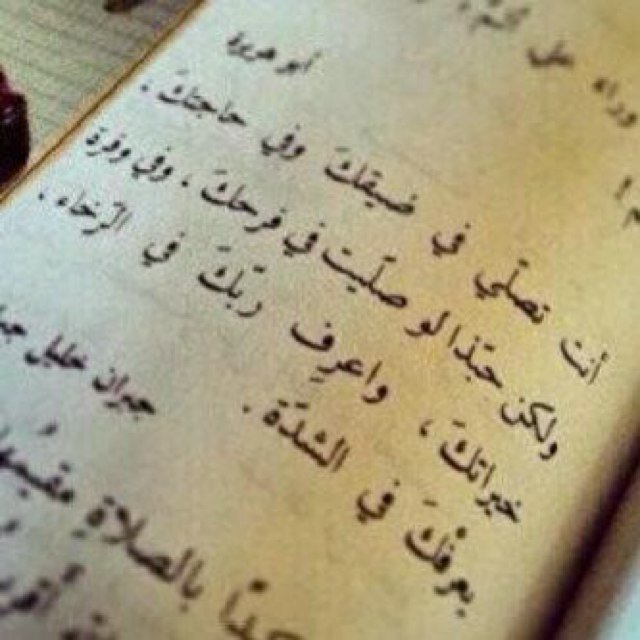 وراء
أبو هريرة
أنت تصلّي في ضيقكَ وفي حاجتكَ،
ولكن حبّذا لو صلّيت في فرحكَ، وفي وفرة
خيراتكَ، واعرِف ربّكَ في الرّخاء،
يعرفْكَ في الشدّة.
جبران خليل
بالصلاةِ